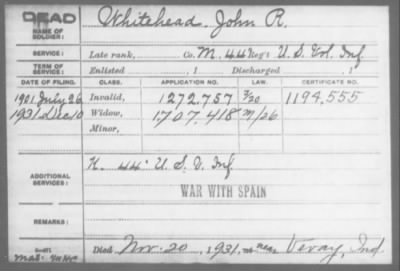 DEAD
NAME OF SOLDIER: Whitehead, John R.
SERVICE: Late rank, Co. M. 44 Reg't U. S. Vol. Inf.
TERM OF SERVICE: Enlisted , 1 Discharged , 1
DATE OF FILING. CLASS. APPLICATION NO. LAW. CERTIFICATE NO.
1901 July 26 Invalid, 1272,757 1194,555
1931 Dec 10 Widow, 1,707,418
Minor,
ADDITIONAL SERVICES: K. 44" U. S. V. Inf.
WAR WITH SPAIN
REMARKS:
Died Nov. 20, 1931, at near Vevay, Ind